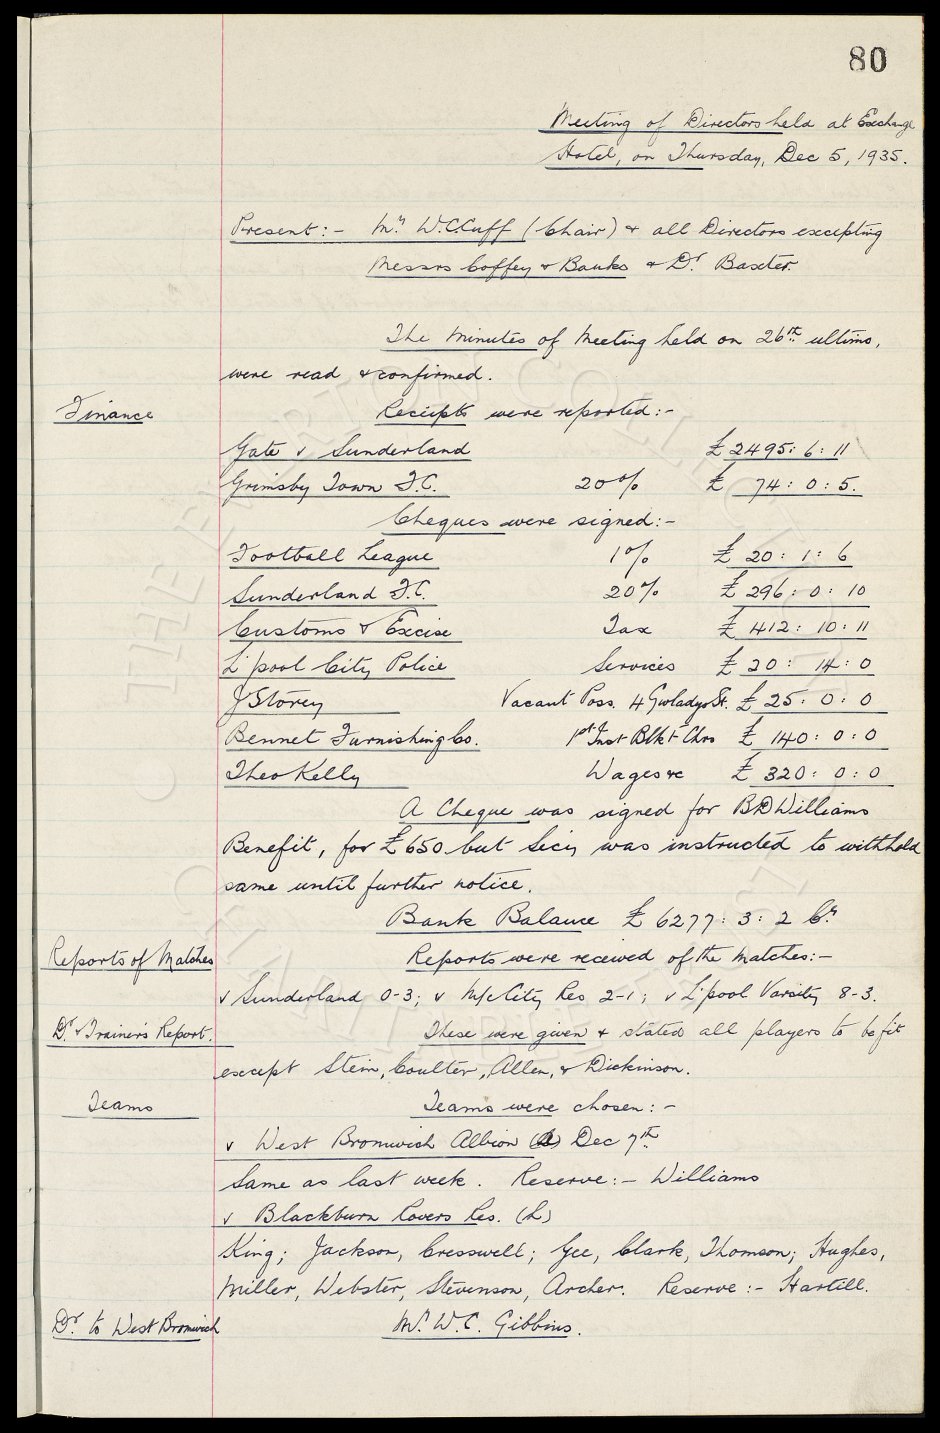 80
Meeting of Directors held at Exchange
Hotel, on Thursday, Dec 5, 1935.
Present:- Mr. W.C.Cuff (Chair) & all Directors excepting
Messrs Coffey & Banks & Dr. Baxter.
The Minutes of Meeting held on 26th ultimo,
were read & confirmed.
Finance Receipts were reported:-
Gate v Sunderland £2495: 6: 11
Grimsby Town F.C. 20% £ 74: 0: 5.
Cheques were signed:-
Football League 1% £ 20: 1: 6
Sunderland F.C. 20% £ 296: 0: 10
Customs & Excise Tax £ 412: 10: 11
L'pool City Police Services £ 20: 14: 0
J Storey Vacant Poss. 4 Gwladys St. £ 25: 0: 0
Bennet Furnishing Co. 1st Inst Blk & Chrs £ 140: 0: 0
Theo Kelly Wages &c £ 320: 0: 0
A Cheque was signed for BDWilliams
Benefit, for £650 but Secy was instructed to withhold
same until further notice.
Bank Balance £ 6277: 3: 2 Cr
Reports of Matches Reports were received of the matches:-
v Sunderland 0-3; v M/c City Res 2-1; v L'pool Varsity 8-3.
Dr & Trainer's Report. These were given & stated all players to be fit
except Stein, Coulter, Allen, & Dickinson.
Teams Teams were chosen:-
v West Bromwich Albion (A) Dec 7th
Same as last week. Reserve:- Williams
v Blackburn Rovers Res. (L)
King; Jackson, Cresswell; Gee, Clark, Thomson; Hughes,
Miller, Webster, Stevenson, Archer. Reserve:- Hartill.
Dr. to West Bromwich Mr. W.C. Gibbins.
THE EVERTON COLLECTION